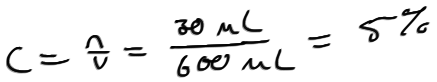 C = n/v = 30 mL / 600 mL = 5%